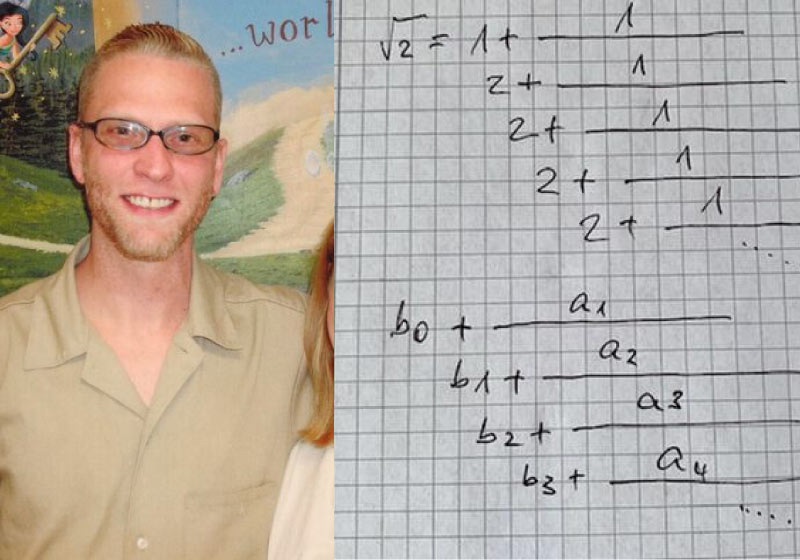 ...worl
√2 = 1 + 1
2 + 1
2 + 1
2 + 1
2 + 1
....
b0 + a1
b1 + a2
b2 + a3
b3 + a4
....